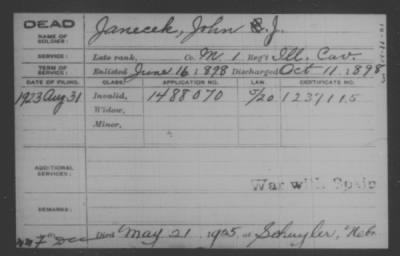 DEAD
NAME OF SOLDIER: Janecek, John J.
SERVICE: Late rank, Co. M. 1 Reg't Ill. Cav.
TERM OF SERVICE: Enlisted June 16, 1898 Discharged Oct 11, 1898
DATE OF FILING. CLASS. APPLICATION NO. CERTIFICATE NO.
1923 Aug 31 Invalid, 1488070 1237115
Widow,
Minor,
ADDITIONAL SERVICES:
War with Spain
REMARKS:
Died May 21, 1925 at Schuyler, Nebr